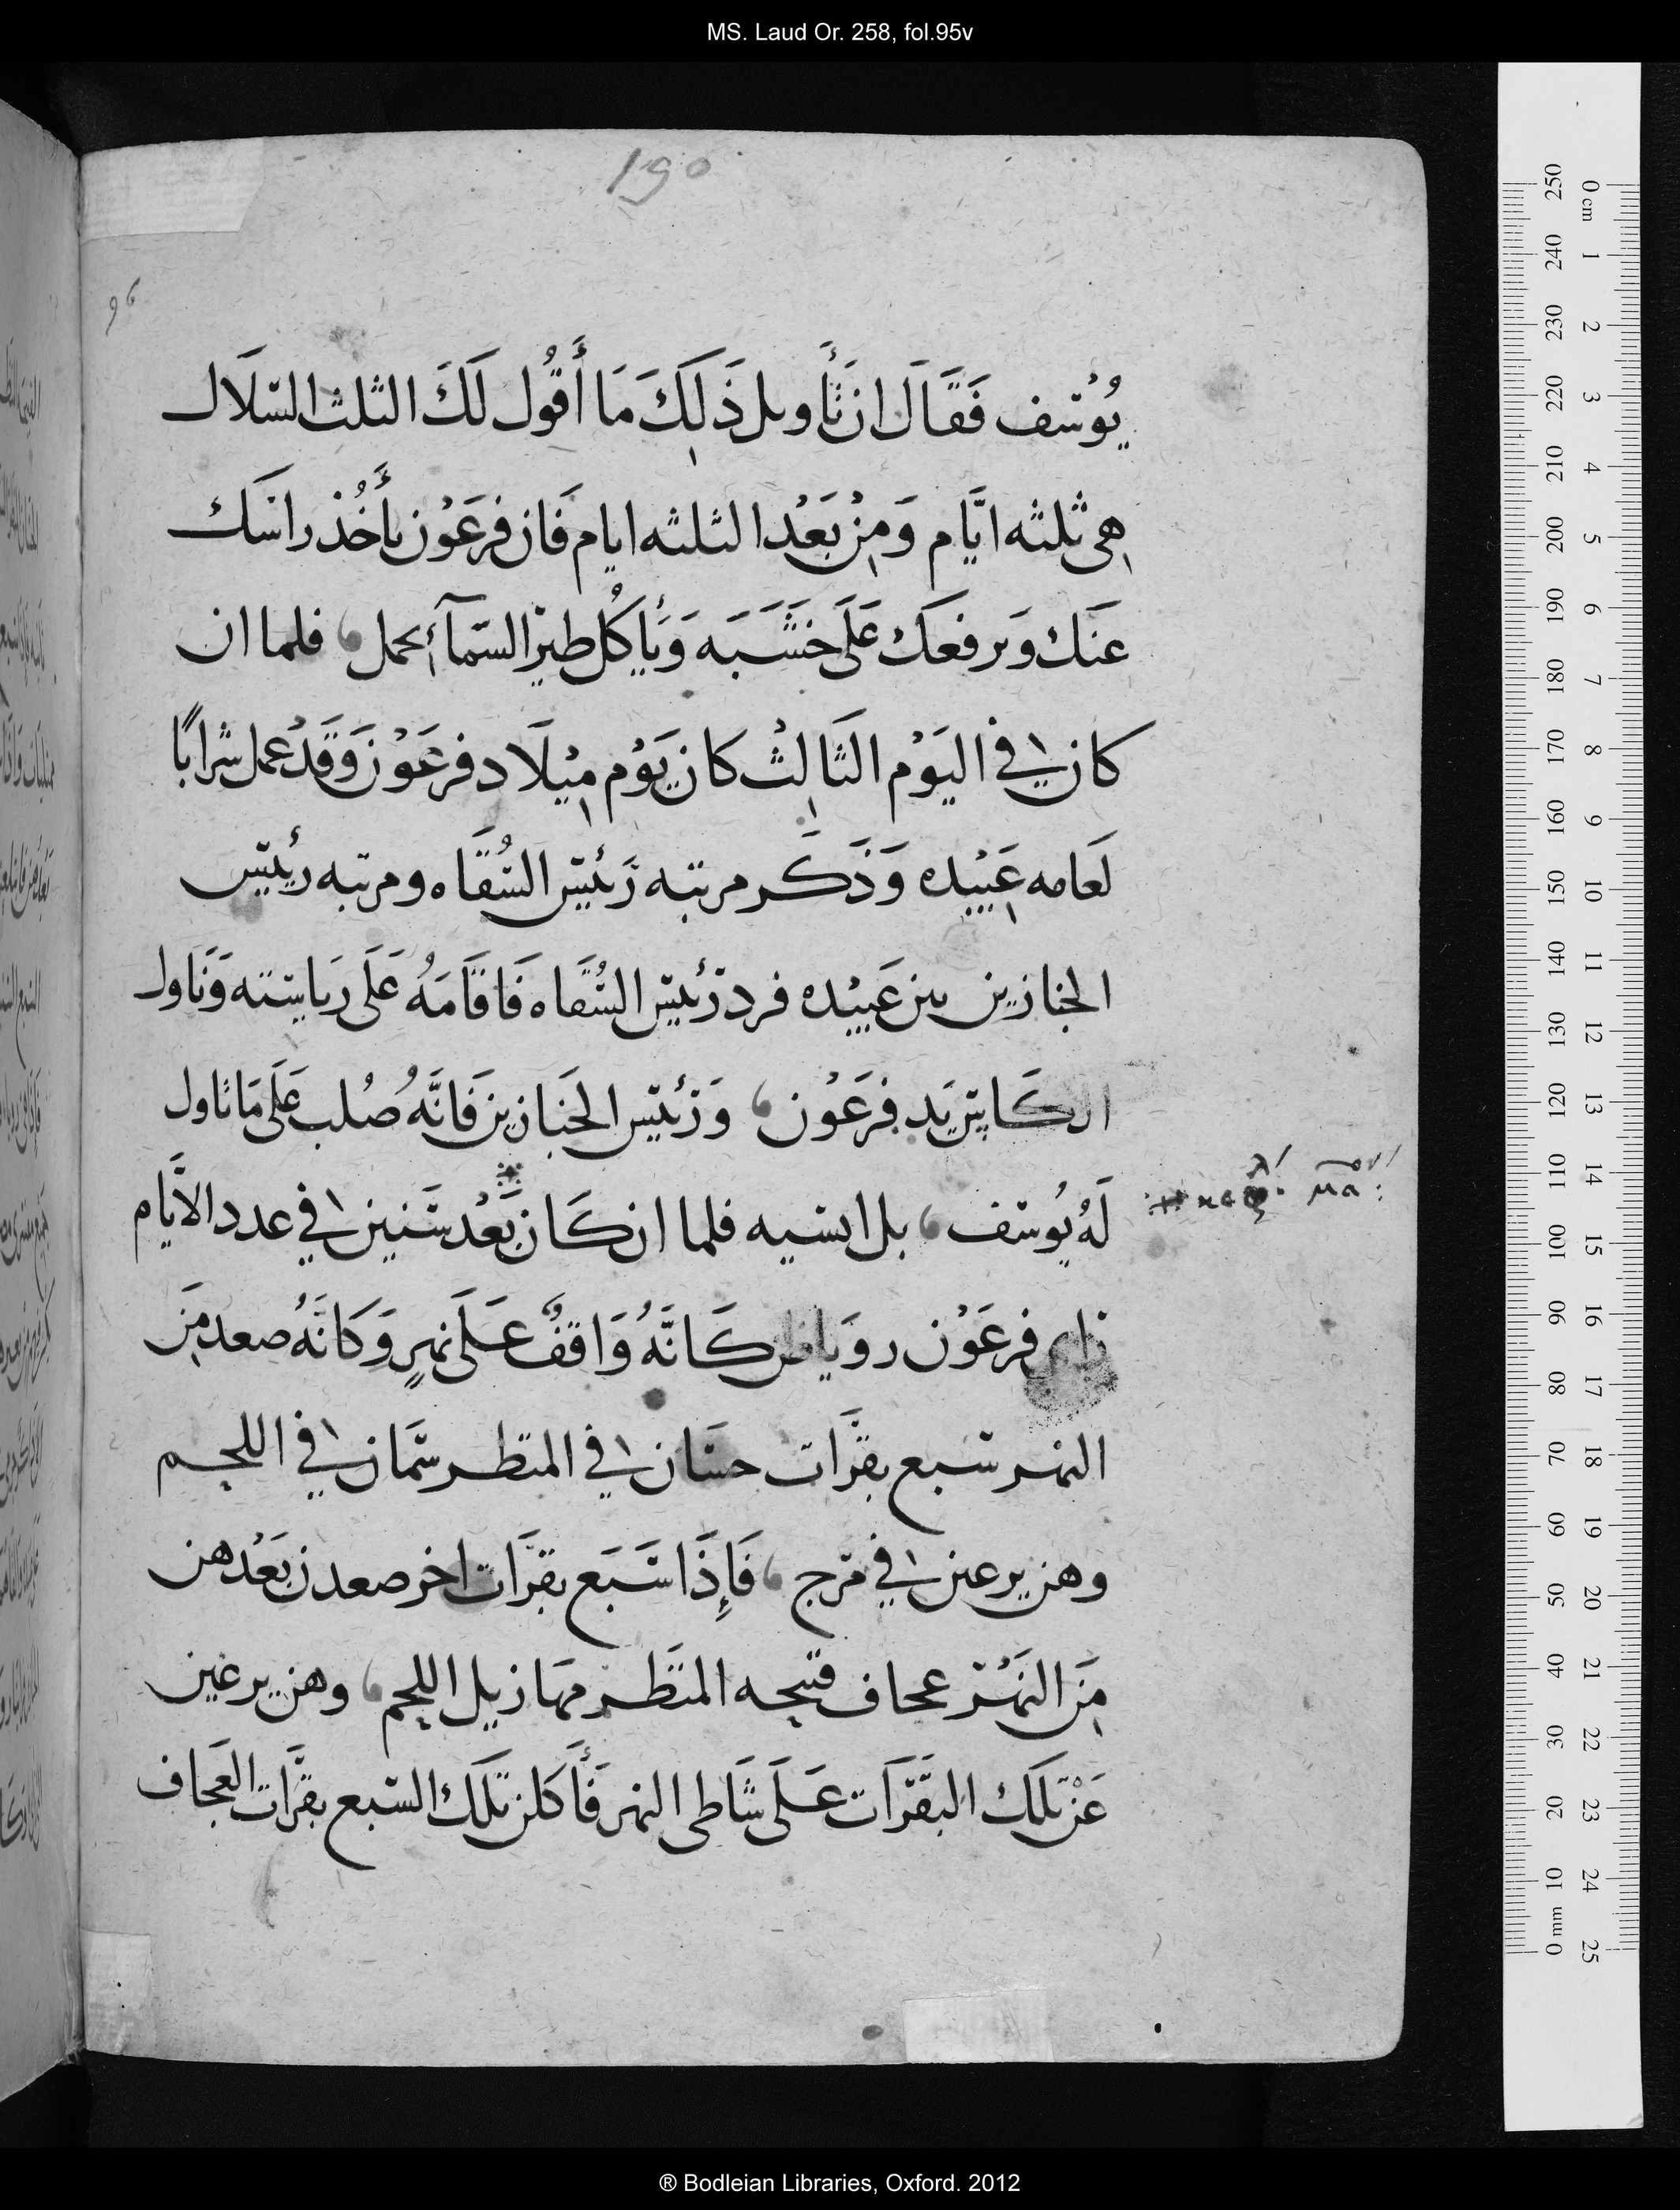 MS. Laud Or. 258, fol.95v
190
96
يُوْسُف فَقَالَ ان تَأويل ذَلِكَ مَا أَقُول لَكَ الثلث السّلَال
هِى ثلثه ايَّام وَمِنْ بَعْد الثلثه ايام فَان فرعَوْن يأَخُذ راسَك
عَنك وَيرفعَك عَلَى خشَبَه وَيأكُل طير السّمآء لحمل فلما ان
كان في اليَوْم الثَالِث كان يَوْم مِيْلَاد فرعَوْن وَقَدْ عمل شرابًا
لعَامه عَبِيْده وَذَكَر مرتبه رَئيسَ السُقَاه ومرتبه رئيسَ
الخبازين من عَبيْده فرد رَئيسَ السُقَاه فَاقَامَهُ عَلَى رياسته وَنَاول
الكَاس يَد فرعَوْن وَرَئيس الخَبازين فَانَّهُ صُلب عَلَى مَا تاول
لَهُ يُوسف بل انسيه فلما ان كَان بَعْد سَنين في عدد الايَّام
راى فرعَوْن رويا كَانَّهُ وَاقفٌ عَلَى نهرٍ وَكانَّهُ صعد مِنَ
النهر سَبع بقرَات حسَان في المنظر سمَان في اللحم
وهن يرعين في مَرج فَإِذَا سَبَع بقرَات اخر صعدن بَعْدهن
مِنَ النَهْر عجاف قبيحه المنظَر مهَازيل اللحم وهن يرعين
عَنْ تلَك البَقَرَات عَلَى شَاطى النهر فَأَكلن تلَك السَبع بقرَات العجَاف
® Bodleian Libraries, Oxford. 2012